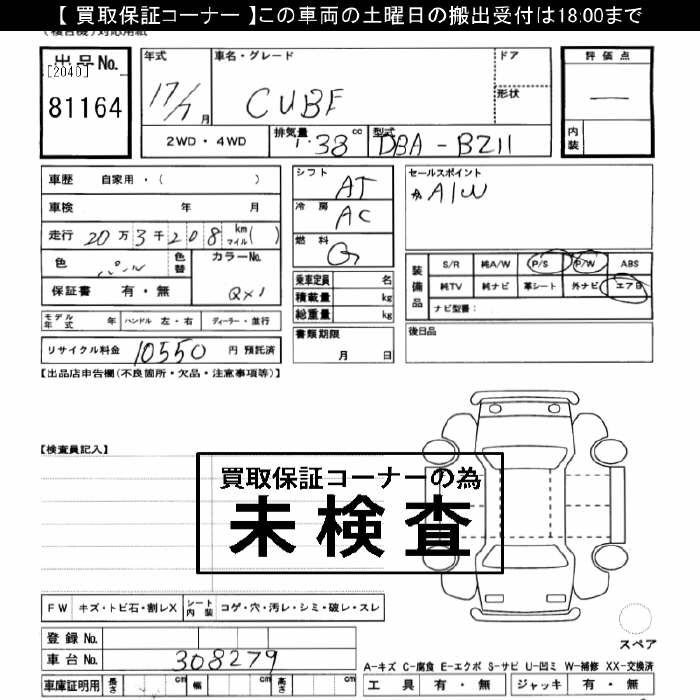 【 買取保証コーナー 】この車両の土曜日の搬出受付は18:00まで
出品No.
[2040]
81164
年式
17/7月
車名・グレード
CUBE
ドア
形状
評価点
—
内装
2WD・4WD
排気量
1.38 cc
型式
DBA-BZ11
車歴 自家用・( )
車検 年 月
走行 20万3千208 km マイル( )
色 パール
色替
カラーNo.
QX1
保証書 有・無
シフト
AT
冷房
AC
燃料
G
セールスポイント
☆A/W
装備品
S/R 純A/W P/S P/W ABS
純TV 純ナビ 革シート 外ナビ エアB
ナビ型番:
乗車定員 名
積載量 kg
総重量 kg
書類期限
月 日
後日品
モデル年式 年 ハンドル 左・右 ディーラー・並行
リサイクル料金 10550 円 預託済
【出品店申告欄(不良箇所・欠品・注意事項等)】
【検査員記入】
買取保証コーナーの為
未検査
FW キズ・トビ石・割レX シート内装 コゲ・穴・汚レ・シミ・破レ・スレ
スペア
登録No.
車台No. 308279
A-キズ C-腐食 E-エクボ S-サビ U-凹ミ W-補修 XX-交換済
車庫証明用 長さ cm 幅 cm 高さ cm
工具 有・無 ジャッキ 有・無